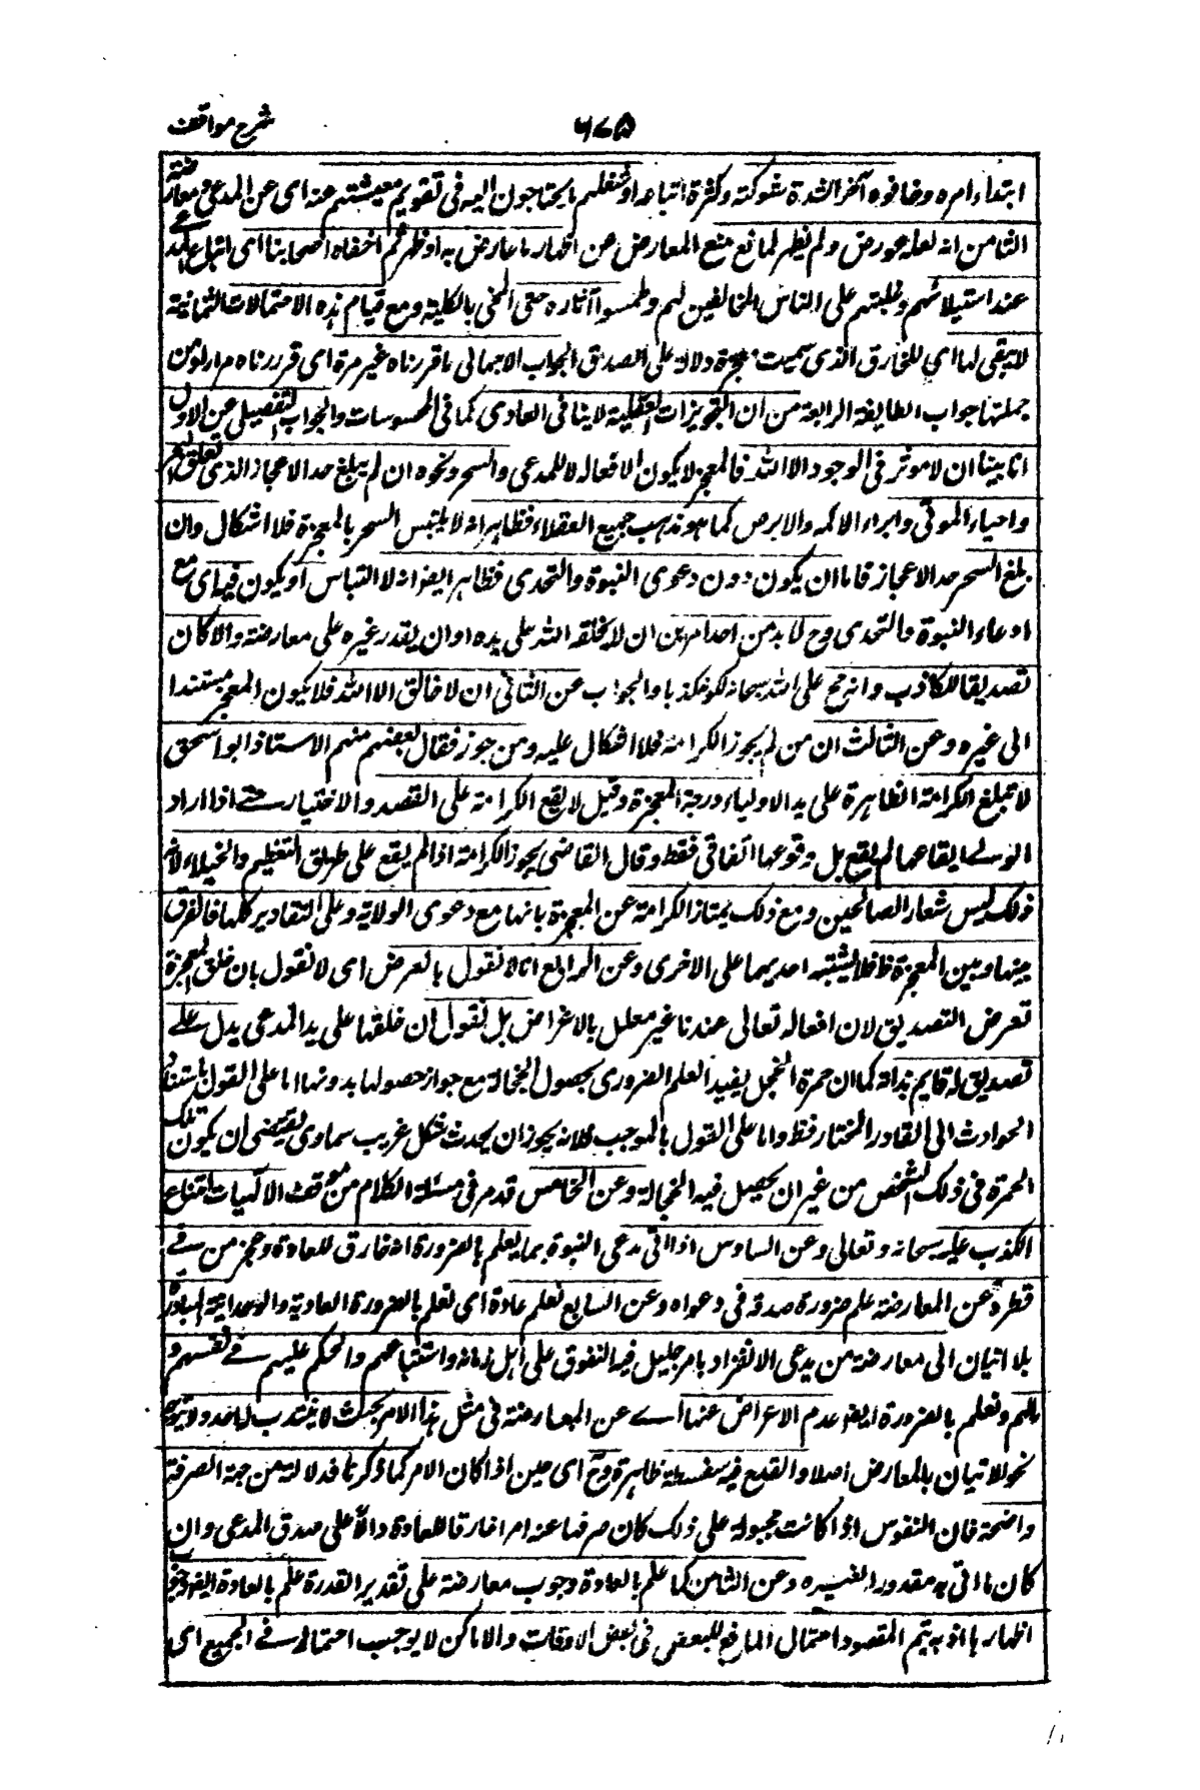 شرح مواقف
٦٧٥
ابتداء امره وخافوه آخر الشدة شوكته وكثرة اتباعه او شغلهم ما يحتاجون اليه في تقويم معيشتهم عنه اى عن المدعى ومعارضته
الثامن انه لعله عورض ولم يظهر لمانع منع المعارض عن اظهار ما عارض به او ظهر ثم اخفاه اصحابنا اى اتباع المدعى
عند استيلائهم وغلبتهم على الناس المخالفين لهم وطمسوا آثاره حتى انمحى بالكلية ومع قيام هذه الاحتمالات الثمانية
لا يبقى لها اى للخارق الذى سميت معجزة دلالة على الصدق الجواب الاجمالى ما قررناه غير مرة اى قررناه مرارا من
جملتها جواب الطايفة الرابعة من ان التجويزات العقلية لا ينافى العادى كما في المحسوسات والجواب التفصيلى عن الاول
انا بينا ان لا موثر في الوجود الا الله فالمعجز لا يكون الا فعاله لا للمدعى والسحر ونحوه ان لم يبلغ حد الاعجاز الذى كفلق البحر
واحياء الموتى وابراء الاكمه والابرص كما هو مذهب جميع العقلاء فظاهر انه لا يلتبس السحر بالمعجزة فلا اشكال وان
بلغ السحر حد الاعجاز فاما ان يكون دون دعوى النبوة والتحدى فظاهر ايضا انه لا التباس او يكون فيه اى مع
ادعاء النبوة والتحدى وح لا بد من احد امرين ان لا يخلقه الله على يده او ان يقدر غيره على معارضته والا كان
تصديقا للكاذب وانه مح على الله سبحانه لكونه كذبا والجواب عن الثانى ان لا خالق الا الله فلا يكون المعجز مستندا
الى غيره وعن الثالث ان من لم يجوز الكرامة فلا اشكال عليه ومن جوز فقال بعضهم منهم الاستاذ ابو اسحق
لا تبلغ الكرامة الظاهرة على يد الاولياء درجة المعجزة وقيل لا يقع الكرامة على القصد والاختيار حتى اذا اراد
الولى ايقاعها لم يقع بل وقوعها اتفاقى فقط وقال القاضى يجوز الكرامة اذا لم يقع على طريق التعظيم والخيلاء لان
ذلك ليس شعار الصالحين ومع ذلك يمتاز الكرامة عن المعجزة بانها مع دعوى الولاية وعلى التقادير كلها فالفرق
بينها وبين المعجزة ظ فلا يشتبه احديهما على الاخرى وعن الرابع انا لا نقول بالغرض اى لا نقول بان خلق المعجزة
لغرض التصديق لان افعاله تعالى عندنا غير معلل بالاغراض بل نقول ان خلقها على يد المدعى يدل على
تصديق له قايم بذاته كما ان حمرة الخجل يفيد العلم الضرورى بحصول الخجالة مع جواز حصولها بدونها اما على القول باستناد
الحوادث الى القادر المختار فظ واما على القول بالموجب فلانه يجوز ان يحدث شكل غريب سماوى يقتضى ان يكون تلك
الحمرة في ذلك الشخص من غير ان يحصل فيه الخجالة وعن الخامس قد مر في مسئلة الكلام من موقف الالهيات امتناع
الكذب عليه سبحانه وتعالى وعن السادس اذا اتى مدعى النبوة بما يعلم بالضرورة انه خارق للعادة وعجز من فى
قطره عن المعارضة علم ضرورة صدقه في دعواه وعن السابع نعلم عادة اى نعلم بالضرورة العادية والوجدانية المبادرة
بلا اتيان الى معارضة من يدعى الانفراد بامر جليل فيه التفوق على اهل زمانه واستتباعهم والحكم عليهم فى نفسهم و
مالهم ونعلم بالضرورة ايضا عدم الاعراض عنها اى عن المعارضة في مثل هذا الامر بحيث لا ينتدب له احد ولا يتوجه
نحو الاتيان بالمعارض اصلا والقدح فيه سفسطة ظاهرة وح اى حين اذا كان الامر كما ذكرنا فدلالته من جهة الصرفة
واضحة فان النفوس اذا كانت مجبولة على ذلك كان صرفها عنه امرا خارقا للعادة دالا على صدق المدعى وان
كان ما اتى به مقدورا لغيره وعن الثامن كما علم بالعادة وجوب معارضته على تقدير القدرة علم بالعادة ايضا وجوب
اظهارها اذ به يتم المقصود احتمال المانع للبعض في بعض الاوقات والاماكن لا يوجب احتماله فى الجميع اى